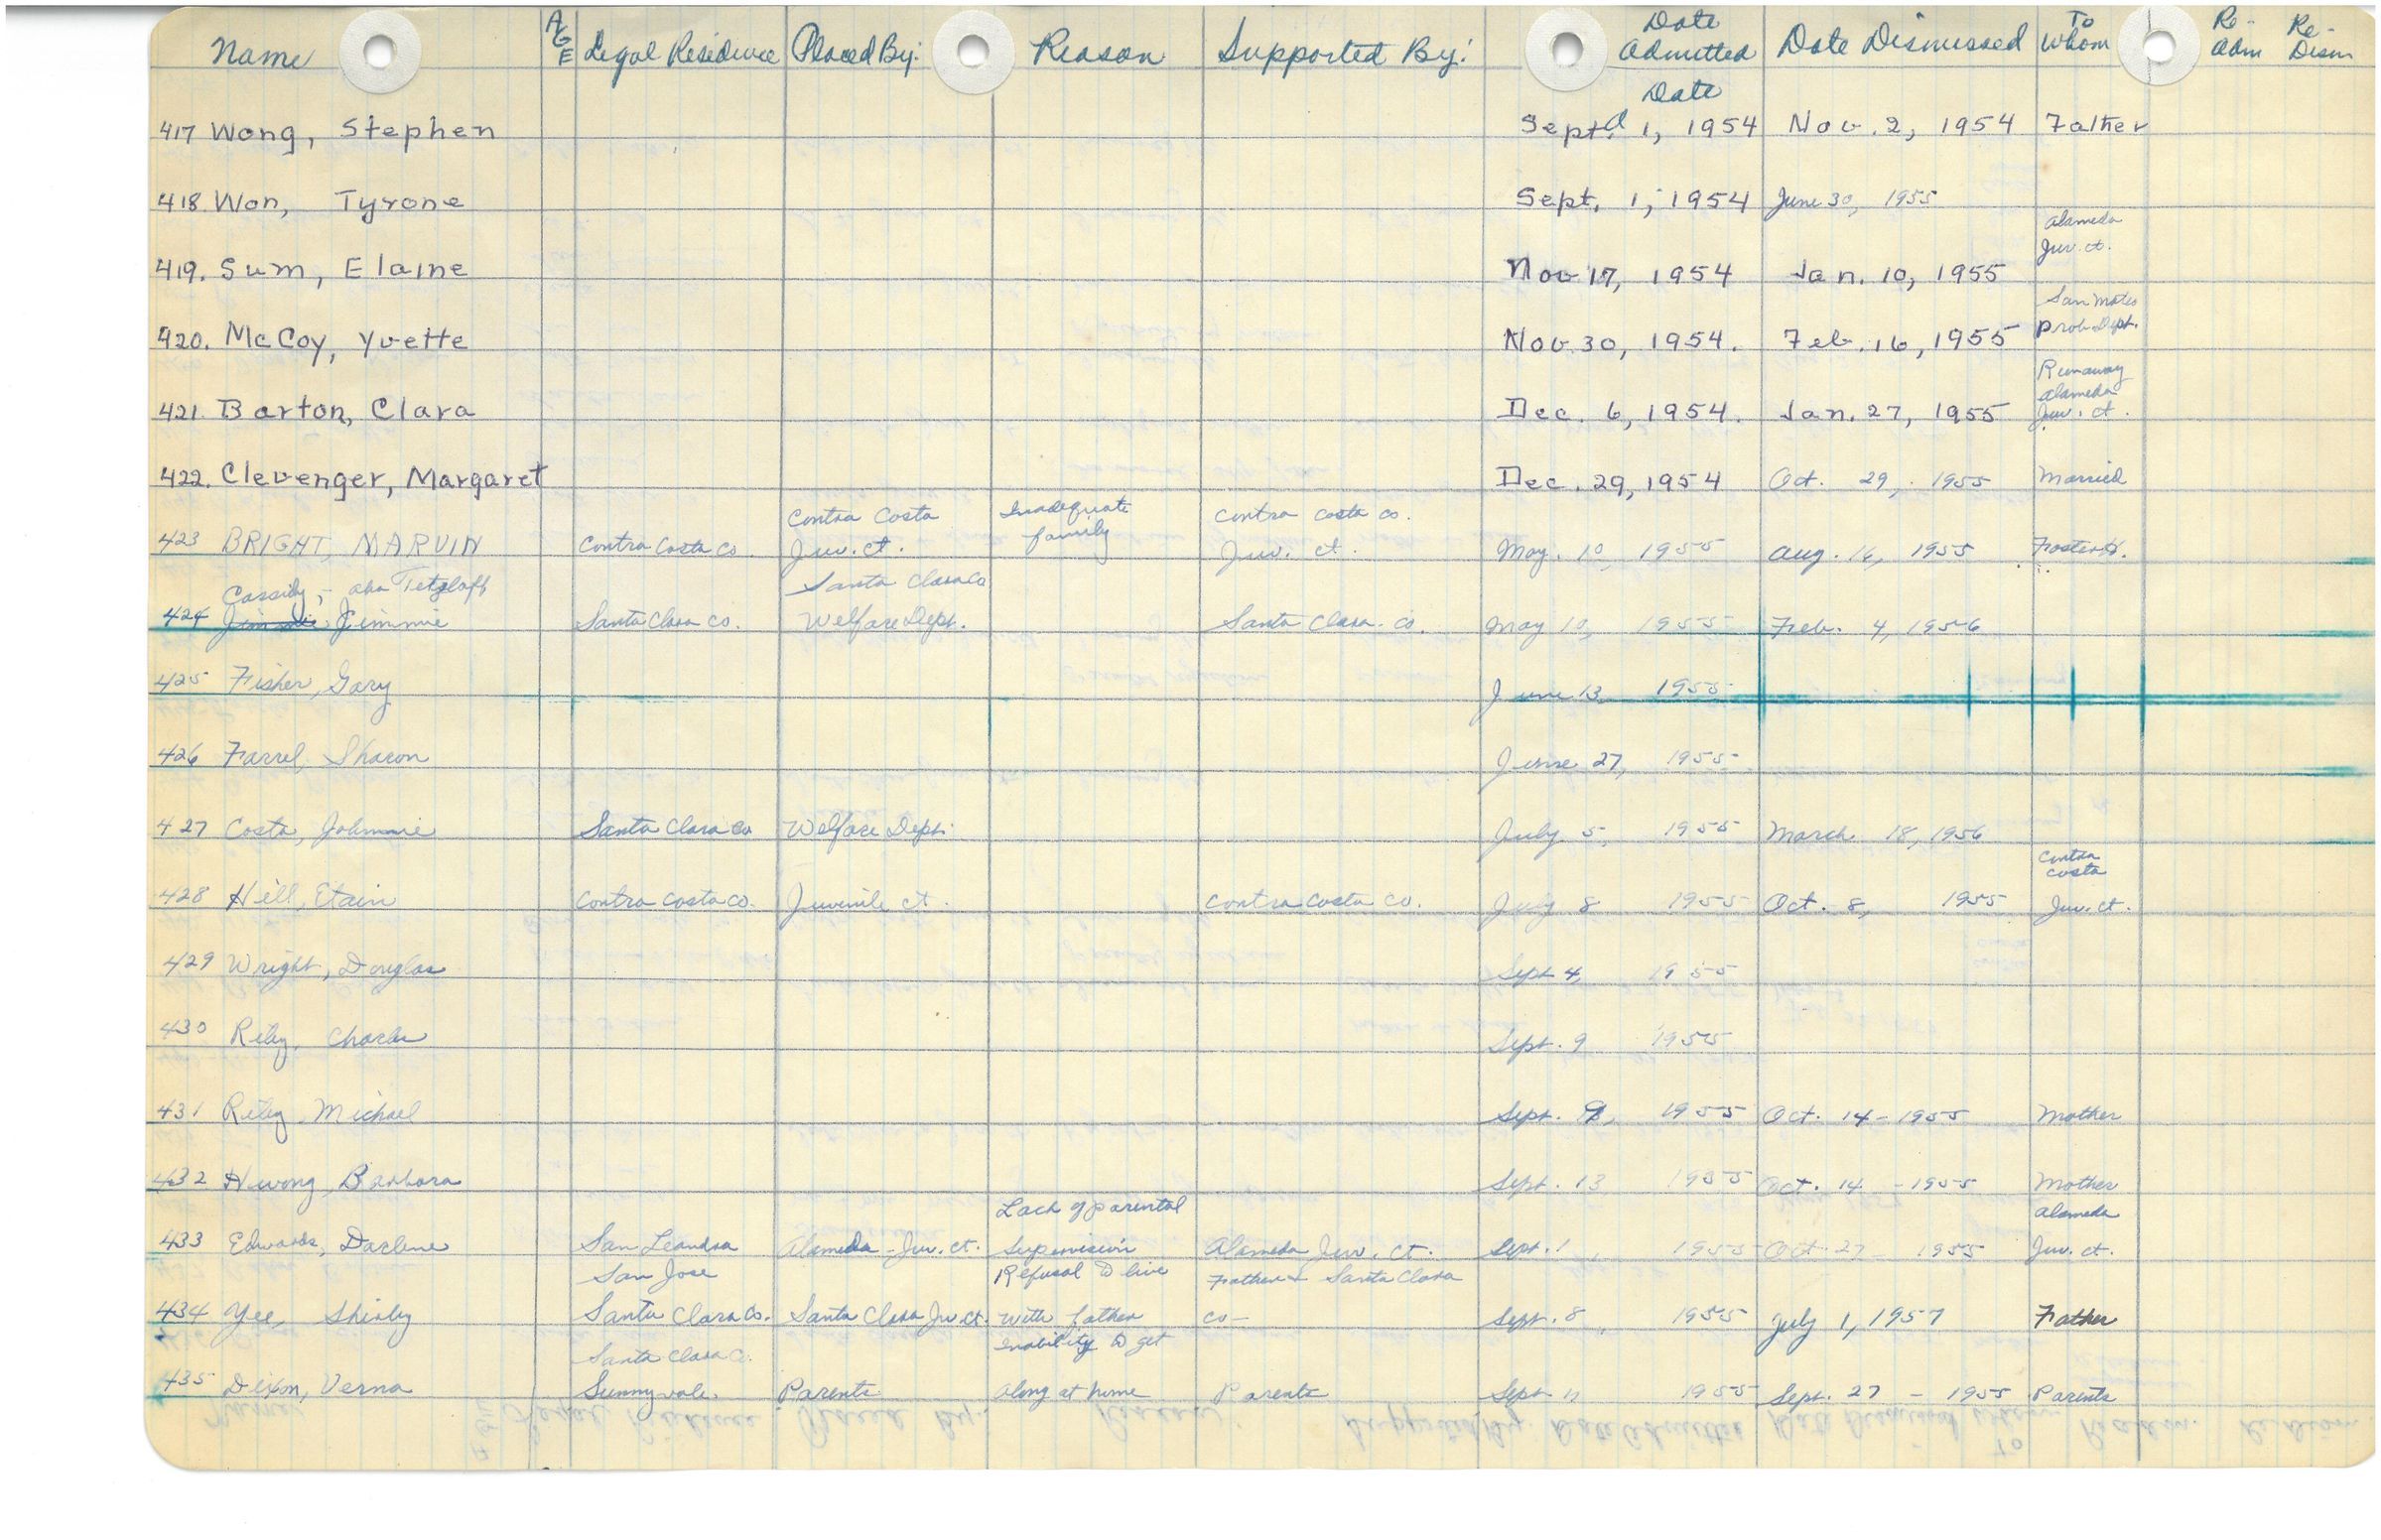 Name AGE Legal Residence Placed By: Reason Supported By: Date Admitted Date Dismissed To Whom Re-Adm Re-Dism
Date
417 Wong, Stephen Sept. 1, 1954 Nov. 2, 1954 Father
418. Won, Tyrone Sept. 1, 1954 June 30, 1955
Alameda
Juv. ct.
419. Sum, Elaine Nov 17, 1954 Jan. 10, 1955
San Mateo
420. McCoy, Yvette Nov. 30, 1954. Feb. 16, 1955 Prob. Dept.
Runaway
Alameda
421. Barton, Clara Dec. 6, 1954. Jan. 27, 1955 Juv. ct.
422. Clevenger, Margaret Dec. 29, 1954 Oct. 29, 1955 Married
Contra Costa Inadequate Contra Costa Co.
423 BRIGHT, MARVIN Contra Costa Co. Juv. ct. family Juv. ct. May. 10, 1955 Aug. 16, 1955 Foster H.
Cassidy, - aka Tetzlaff Santa Clara Co
424 Jimmie, Jimmie Santa Clara Co. Welfare Dept. Santa Clara. Co. May 10, 1955 Feb. 4, 1956
425 Fisher, Gary June 13, 1955
426 Farrel, Sharon June 27, 1955
427 Costa, Johnnie Santa Clara Co Welfare Dept. July 5, 1955 March 18, 1956
Contra
Costa
428 Hill, Etain Contra Costa Co. Juvenile ct. Contra Costa Co. July 8 1955 Oct. 8, 1955 Juv. ct.
429 Wright, Douglas Sept 4, 1955
430 Riley, Charles Sept. 9 1955
431 Riley, Michael Sept. 9, 1955 Oct. 14 - 1955 Mother
432 Hwong, Barbara Sept. 13 1955 Oct. 14 - 1955 Mother
Lack of parental Alameda
433 Edwards, Darlene San Leandro Alameda - Juv. ct. Supervision Alameda Juv. ct. Sept. 1, 1955 Oct 27 - 1955 Juv. ct.
San Jose Refusal to live Father + Santa Clara
434 Yee, Shirley Santa Clara Co. Santa Clara Juv ct. with father Co - Sept. 8, 1955 July 1, 1957 Father
Santa Clara C. Inability to get
435 Dixon, Verna Sunnyvale. Parents along at home Parents Sept. 11 1955 Sept. 27 - 1955 Parents